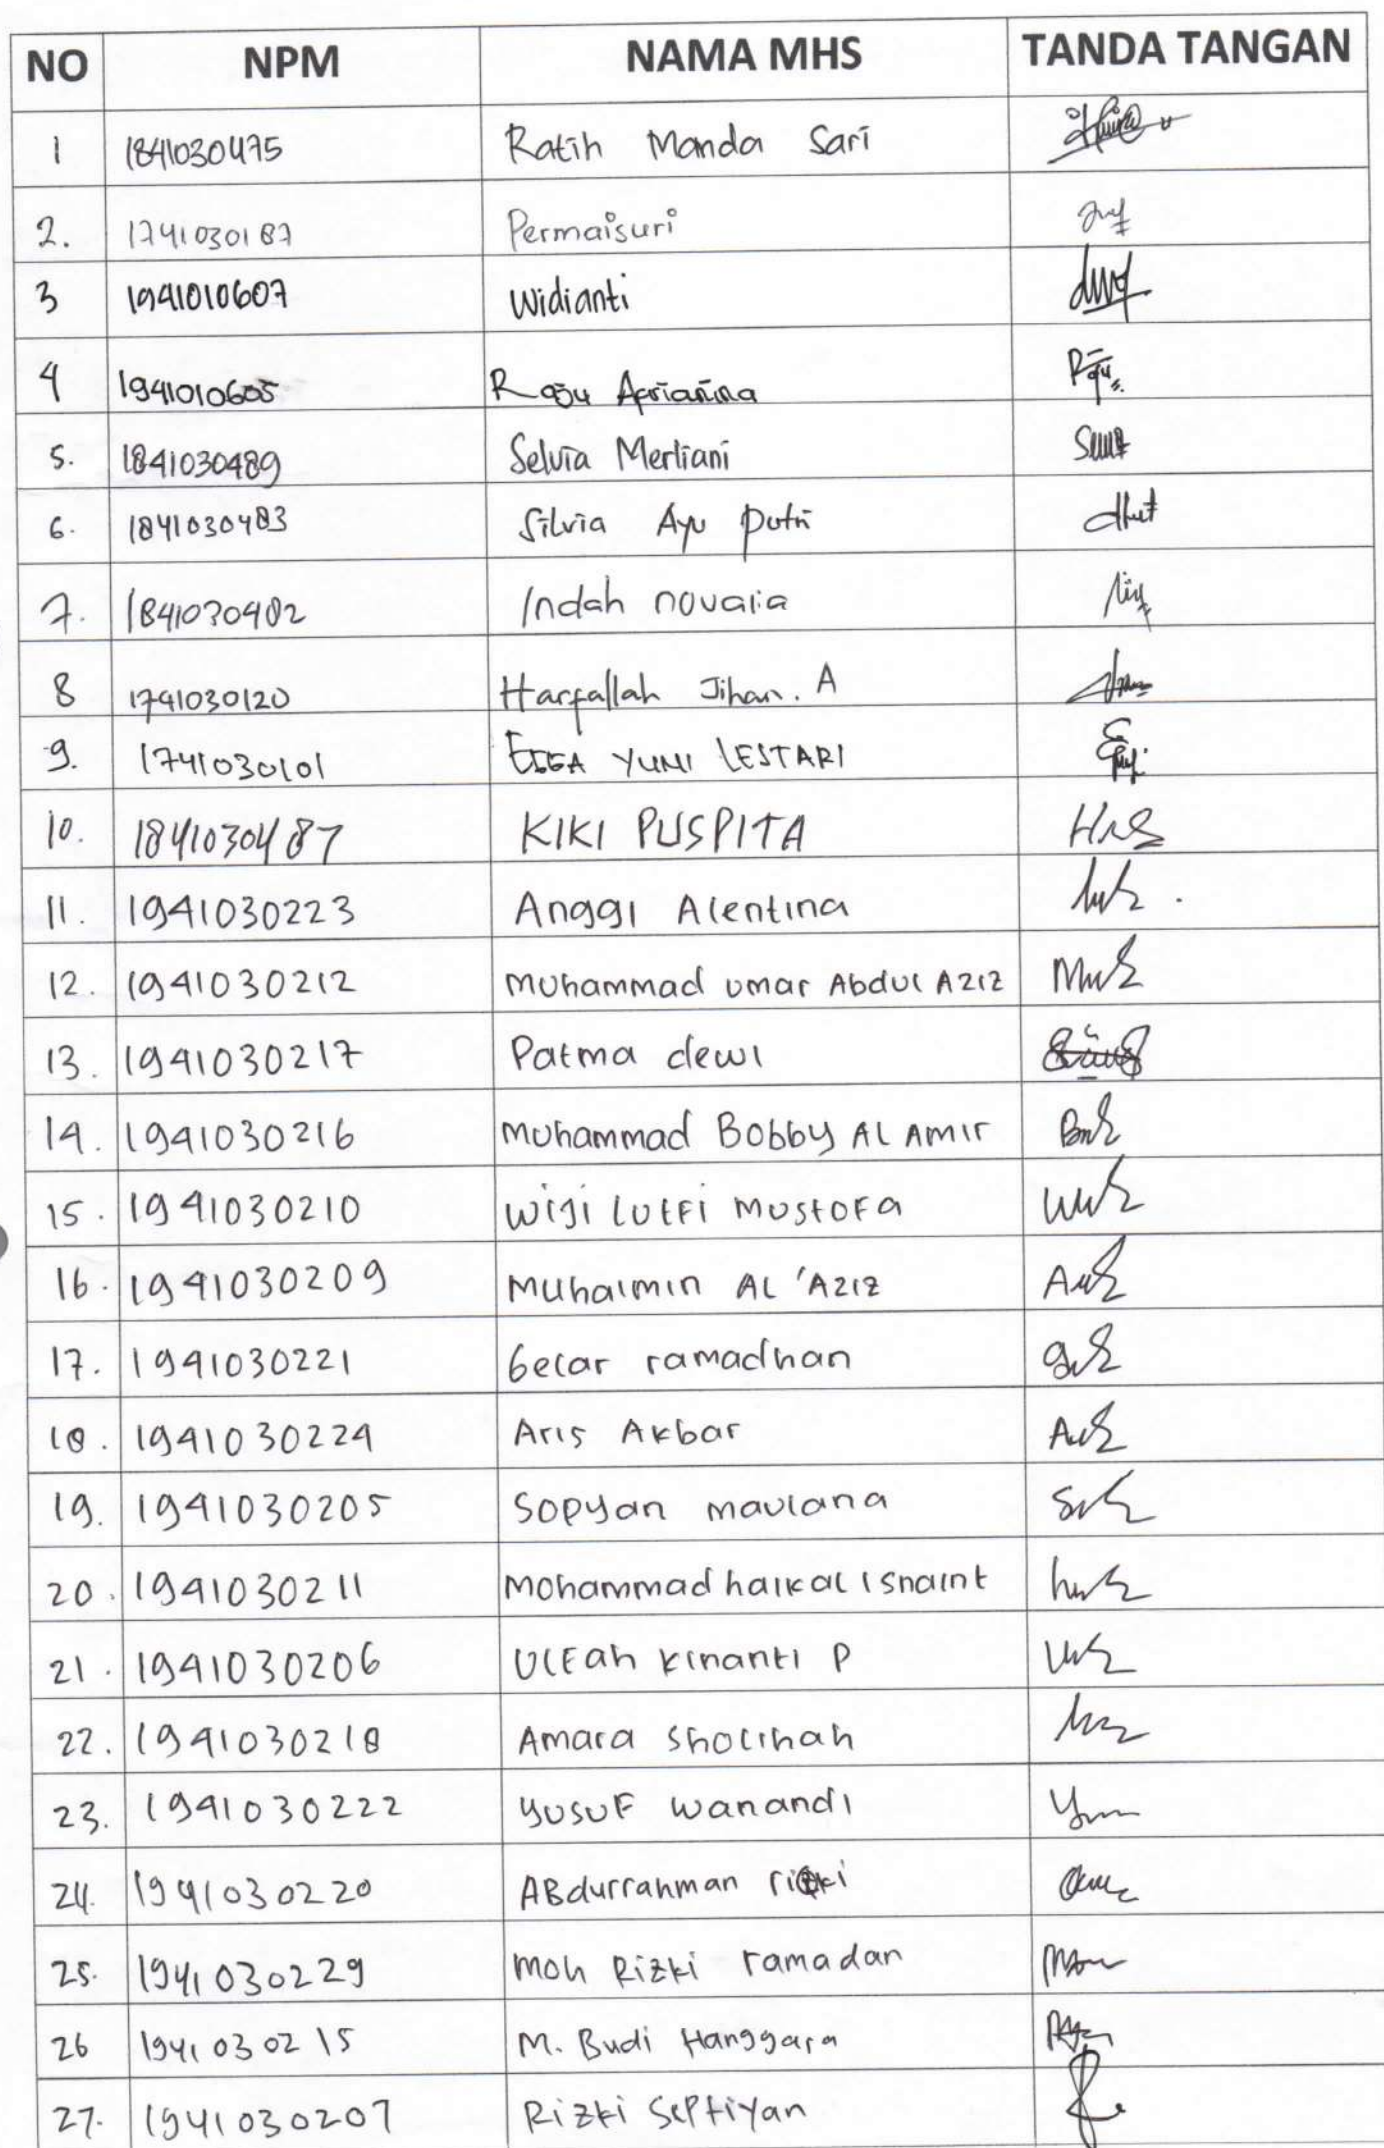 NO NPM NAMA MHS TANDA TANGAN
1 1841030475 Ratih Manda Sari
2. 1741030187 Permaisuri
3 1941010607 Widianti
4 1941010605
5. 1841030489 Selvia Merliani
6. 1841030483 Silvia Ayu putri
7. 1841030482 Indah novalia
8 1741030120 Harfallah Jihan. A
9. 1741030101 YUNI LESTARI
10. 1841030487 KIKI PUSPITA
11. 1941030223 Anggi Alentina
12. 1941030212 Muhammad umar Abdul Aziz
13. 1941030217 Patma dewi
14. 1941030216 Muhammad Bobby AL AMir
15. 1941030210 Wiji LutFi MustoFa
16. 1941030209 Muhaimin AL 'Aziz
17. 1941030221 Gecar ramadhan
18. 1941030224 Aris Akbar
19. 1941030205 Sopyan maulana
20. 1941030211 Mohammad haikal isnaint
21. 1941030206 UlFah kinanti P
22. 1941030218 Amara Sholihah
23. 1941030222 YusuF wanandi
24. 1941030220 ABdurrahman rizki
25. 1941030229 Moh Rizki ramadan
26 1941030215 M. Budi Hanggara
27. 1941030207 Rizki Septiyan